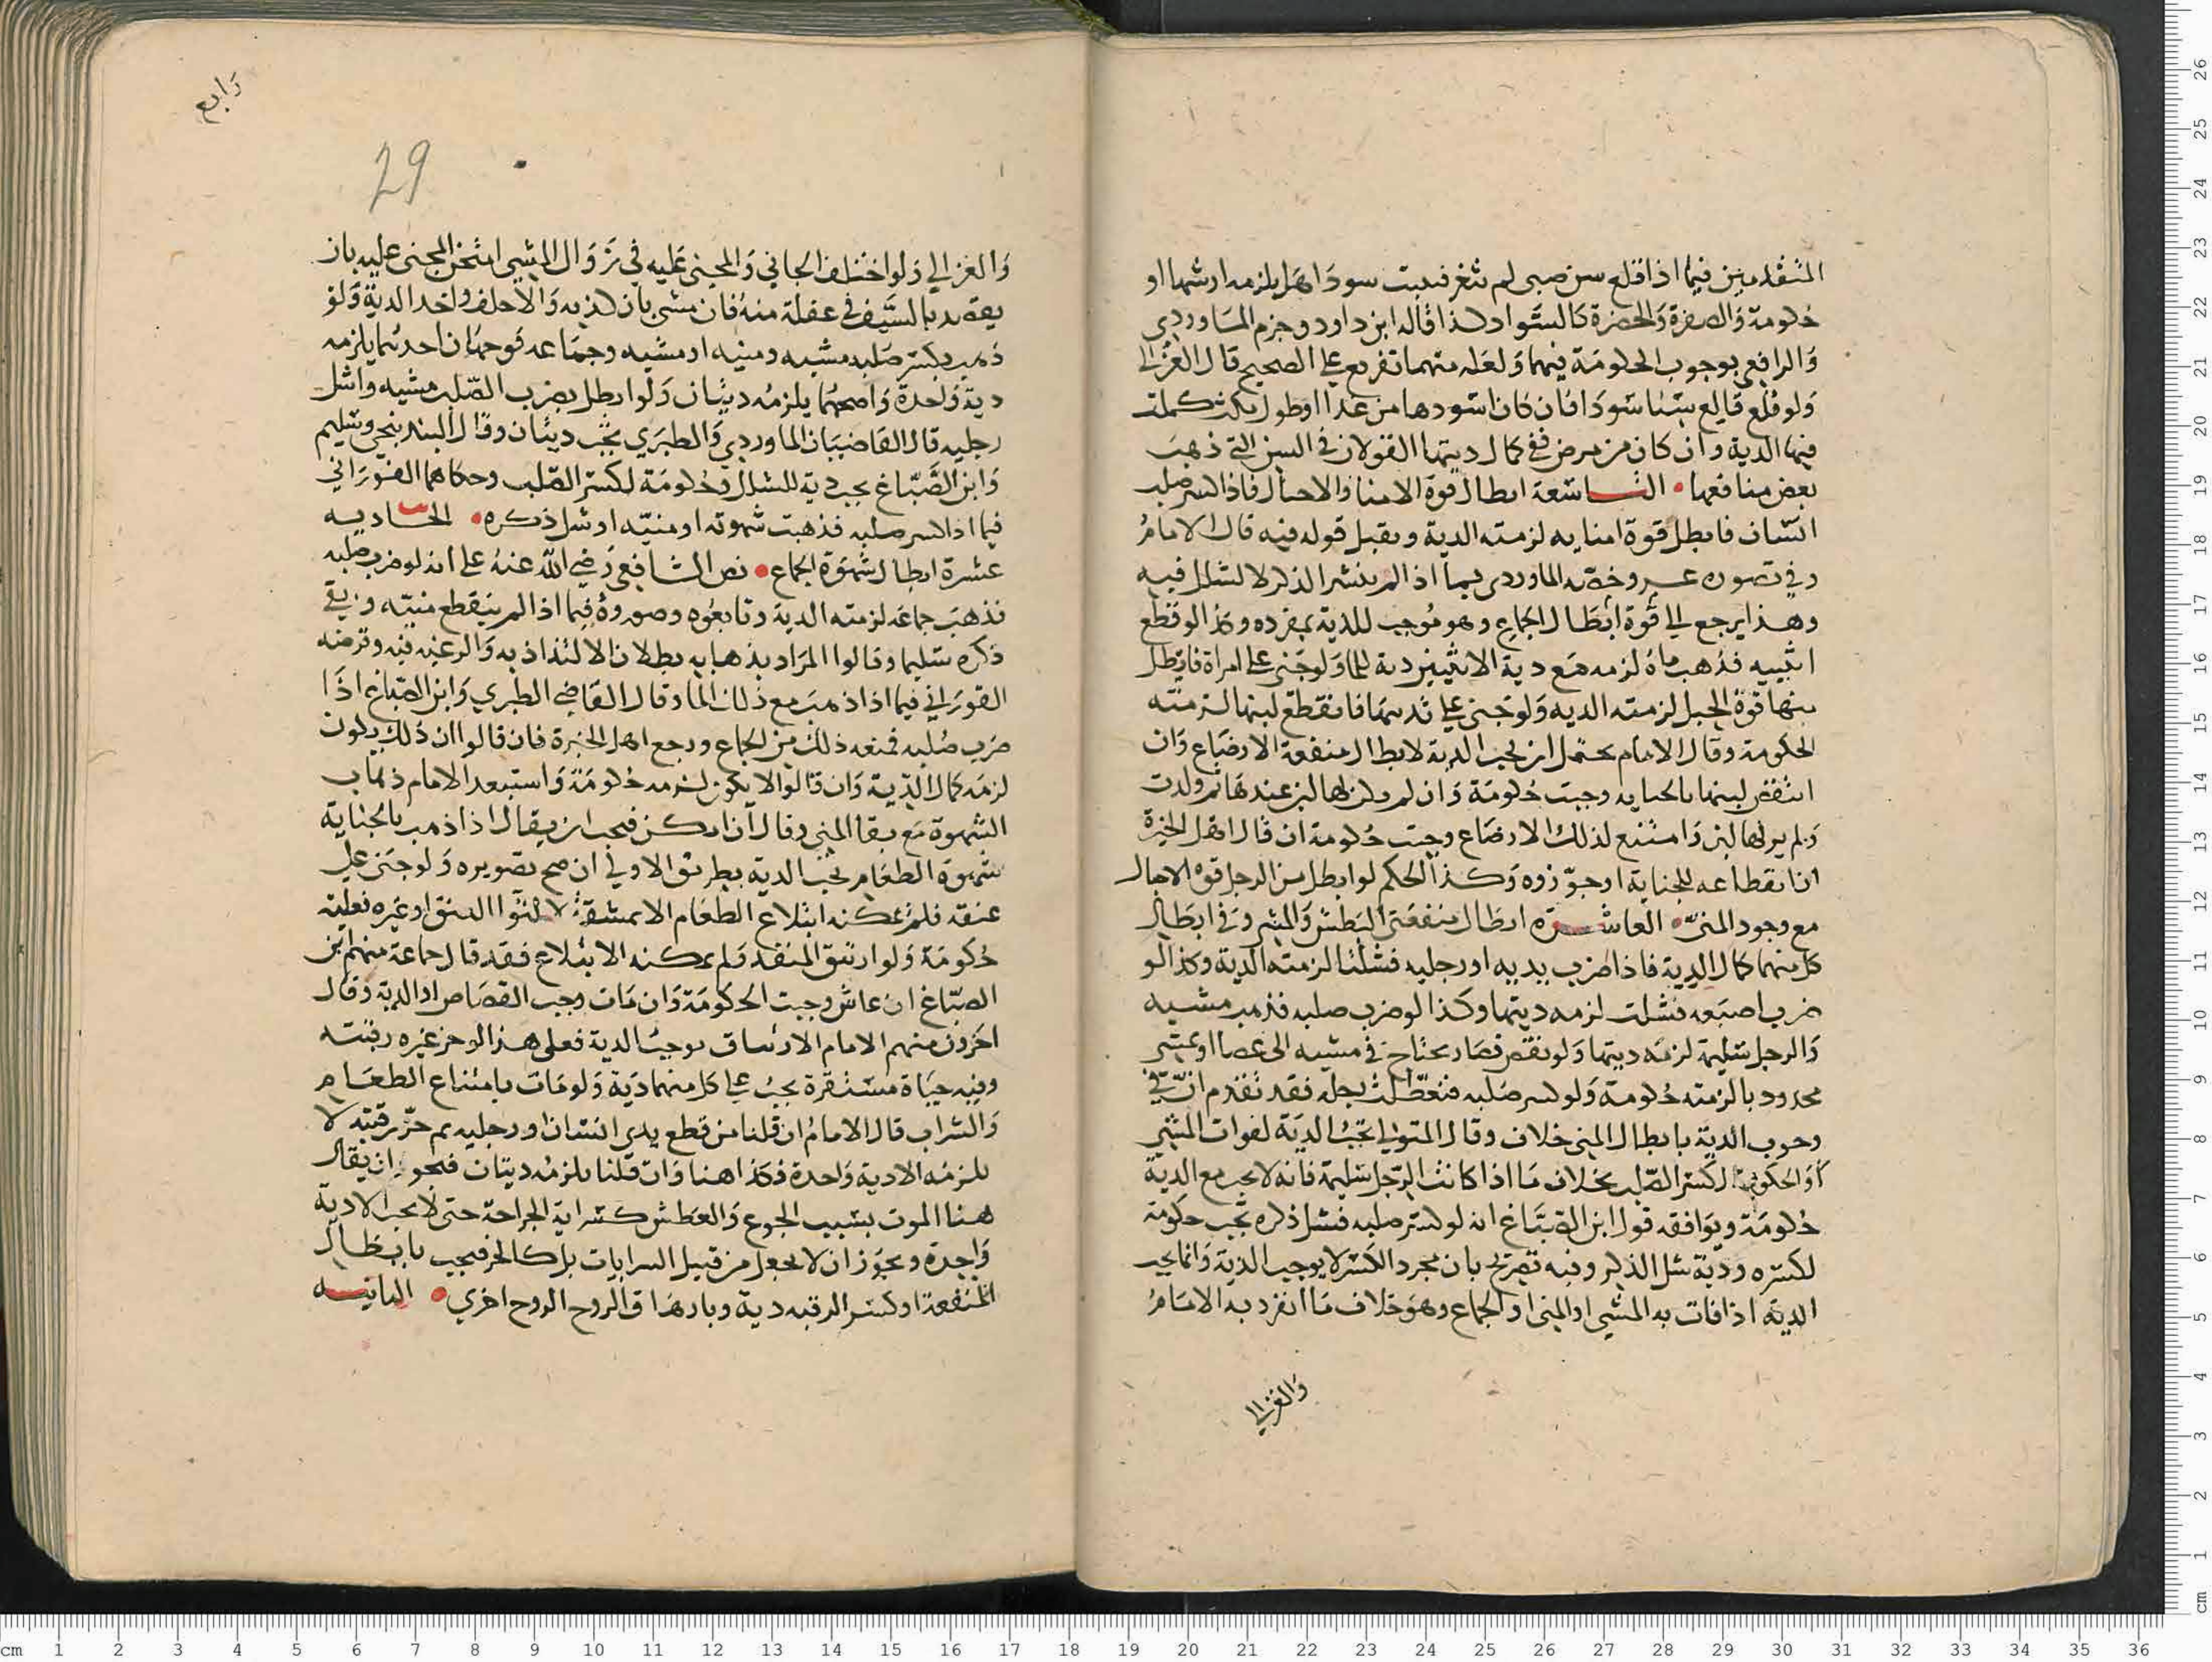 المتقدمين فيما اذا قلع سن صبي لم تثغر فنبتت سودا هل يلزمه ارشها او
حكومة والصفرة والخضرة كالسواد كذا قاله ابن داود وجزم الماوردي
والرافعي بوجوب الحكومة فيهما ولعله منهما تفريع على الصحيح قال الغزالي
ولو قلع قالع سنا سودا فان كان اسودها من غذا او طول مكث كملت
فيها الدية وان كان من مرض ففي كمال ديتها القولان في السن التي ذهب
بعض منافعها • التاسعة ابطال قوة الامنا والاحبال فاذا كسر صلب
انسان فابطل قوة امنايه لزمته الدية ويقبل قوله فيه قال الامام
وفي تصوره عسر وخصه الماوردي بما اذا لم ينتشر الذكر لا لشلل فيه
وهذا يرجع الى قوة ابطال الجماع وهو موجب للدية بمفرده وكذا لو قطع
انثييه فذهب ماؤه لزمه مع دية الانثيين دية للما ولو جنى على امراة فابطل
منها قوة الحبل لزمته الدية ولو جنى على ثدييها فانقطع لبنها لزمته
الحكومة وقال الامام يحتمل ان يجب الدية لابطال منفعة الارضاع وان
انتقض لبنها بالجنايه وجبت حكومة وان لم يكن لها لبن عندها ثم ولدت
ولم ير لها لبن وامتنع لذلك الارضاع وجبت حكومة ان قال اهل الخبرة
ان انقطاعه للجناية او جوزوه وكذا الحكم لو ابطل من الرجل قوة الاحبال
مع وجود المني • العاشرة ابطال منفعتي البطش والمشي وفي ابطال
كل منهما كمال الدية فاذا ضرب يديه او رجليه فشلتا لزمته الدية وكذا لو
ضرب اصبعه فشلت لزمه ديتها وكذا لو ضرب صلبه فذهب مشيه
والرجل سليمة لزمه ديتها ولو نقص فصار يحتاج في مشيه الى عصا او يمشي
محدودبا لزمته حكومة ولو كسر صلبه فتعطلت رجله فقد تقدم ان في
وجوب الدية بابطال المني خلاف وقال المتولي تجب الدية لفوات المشي
او الحكومة لكسر الصلب بخلاف ما اذا كانت الرجل سليمة فانه لا يجب مع الدية
حكومة ويوافقه قول ابن الصباغ انه لو كسر صلبه فشل ذكره تجب حكومة
لكسره ودية لشل الذكر وفيه تصريح بان مجرد الكسر لا يوجب الدية وانما يجب
الدية اذا فات به المشي او المني او الجماع وهو خلاف ما انفرد به الامام
والغزالي
رابع
29
والغزالي ولو اختلف الجاني والمجني عليه في زوال المشي امتحن المجني عليه بان
يقصد بالسيف في غفلة منه فان مشى بان كذبه والا حلف واخذ الدية ولو
ذهب بكسر صلبه مشيه ومنيه او مشيه وجماعه فوجهان احدهما يلزمه
دية واحدة واصحهما يلزمه ديتان ولو ابطل بضرب الصلب مشيه واشل
رجليه قال القاضيان الماوردي والطبري يجب ديتان وقال البندنيجي وسليم
وابن الصباغ يجب دية للشلل وحكومة لكسر الصلب وحكاهما الفوراني
فيما اذا كسر صلبه فذهبت شهوته او منيه او شل ذكره • الحاديه
عشرة ابطال شهوة الجماع • نص الشافعي رضي الله عنه على انه لو ضرب صلبه
فذهب جماعه لزمته الدية وتابعوه وصوروه فيما اذا لم ينقطع منيه وبقي
ذكره سليما وقالوا المراد بذهابه بطلان الالتذاذ به والرغبه فيه وفرضه
الفوراني فيما اذا ذهب مع ذلك الما وقال القاضي الطبري وابن الصباغ اذا
ضرب صلبه فمنعه ذلك من الجماع ورجع اهل الخبرة فان قالوا ان ذلك يكون
لزمه كمال الدية وان قالوا لا يكون لزمه حكومة واستبعد الامام ذهاب
الشهوة مع بقا المني وقال ان امكن فيجب ان يقال اذا ذهب بالجناية
شهوة الطعام تجب الدية بطريق الاولي ان صح تصويره ولو جنى على
عنقه فلم يمكنه ابتلاع الطعام الا بمشقة لالتوا العنق او غيره فعليه
حكومة ولو ارتتق المنفذ ولم يمكنه الابتلاع فقد قال جماعة منهم ابن
الصباغ ان عاش وجبت الحكومة وان مات وجب القصاص او الدية وقال
اخرون منهم الامام الارتتاق يوجب الدية فعلى هذا لو حز غيره رقبته
وفيه حياة مستقرة يجب على كل منهما دية ولو مات بامتناع الطعام
والشراب قال الامام ان قلنا من قطع يدي انسان او رجليه ثم حز رقبته لا
يلزمه الا دية واحدة فكذا هنا وان قلنا يلزمه ديتان فيجوز ان يقال
هنا الموت بسبب الجوع والعطش كسراية الجراحة حتى لا يجب الا دية
واحدة ويجوز ان لا يجعل من قبيل السرايات بل كالحز فيجب بابطال
المنفعة او كسر الرقبه دية وبارهاق الروح الروح اخري • الثانيه